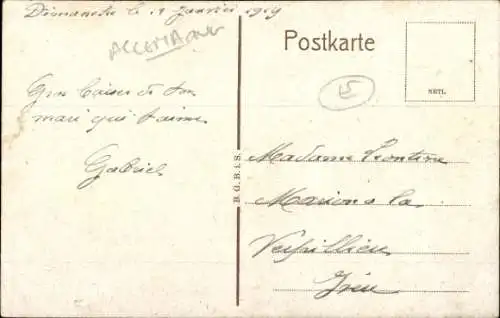 Dimanche le 19 Janvier 1919
ALLEMAGNE
Gros baiser de ton
mari qui t'aime
Gabriel
Postkarte
15
NBTL
B. O. B. i. S.
Madame Leontine
Marion a la
Verpillieu
Isère